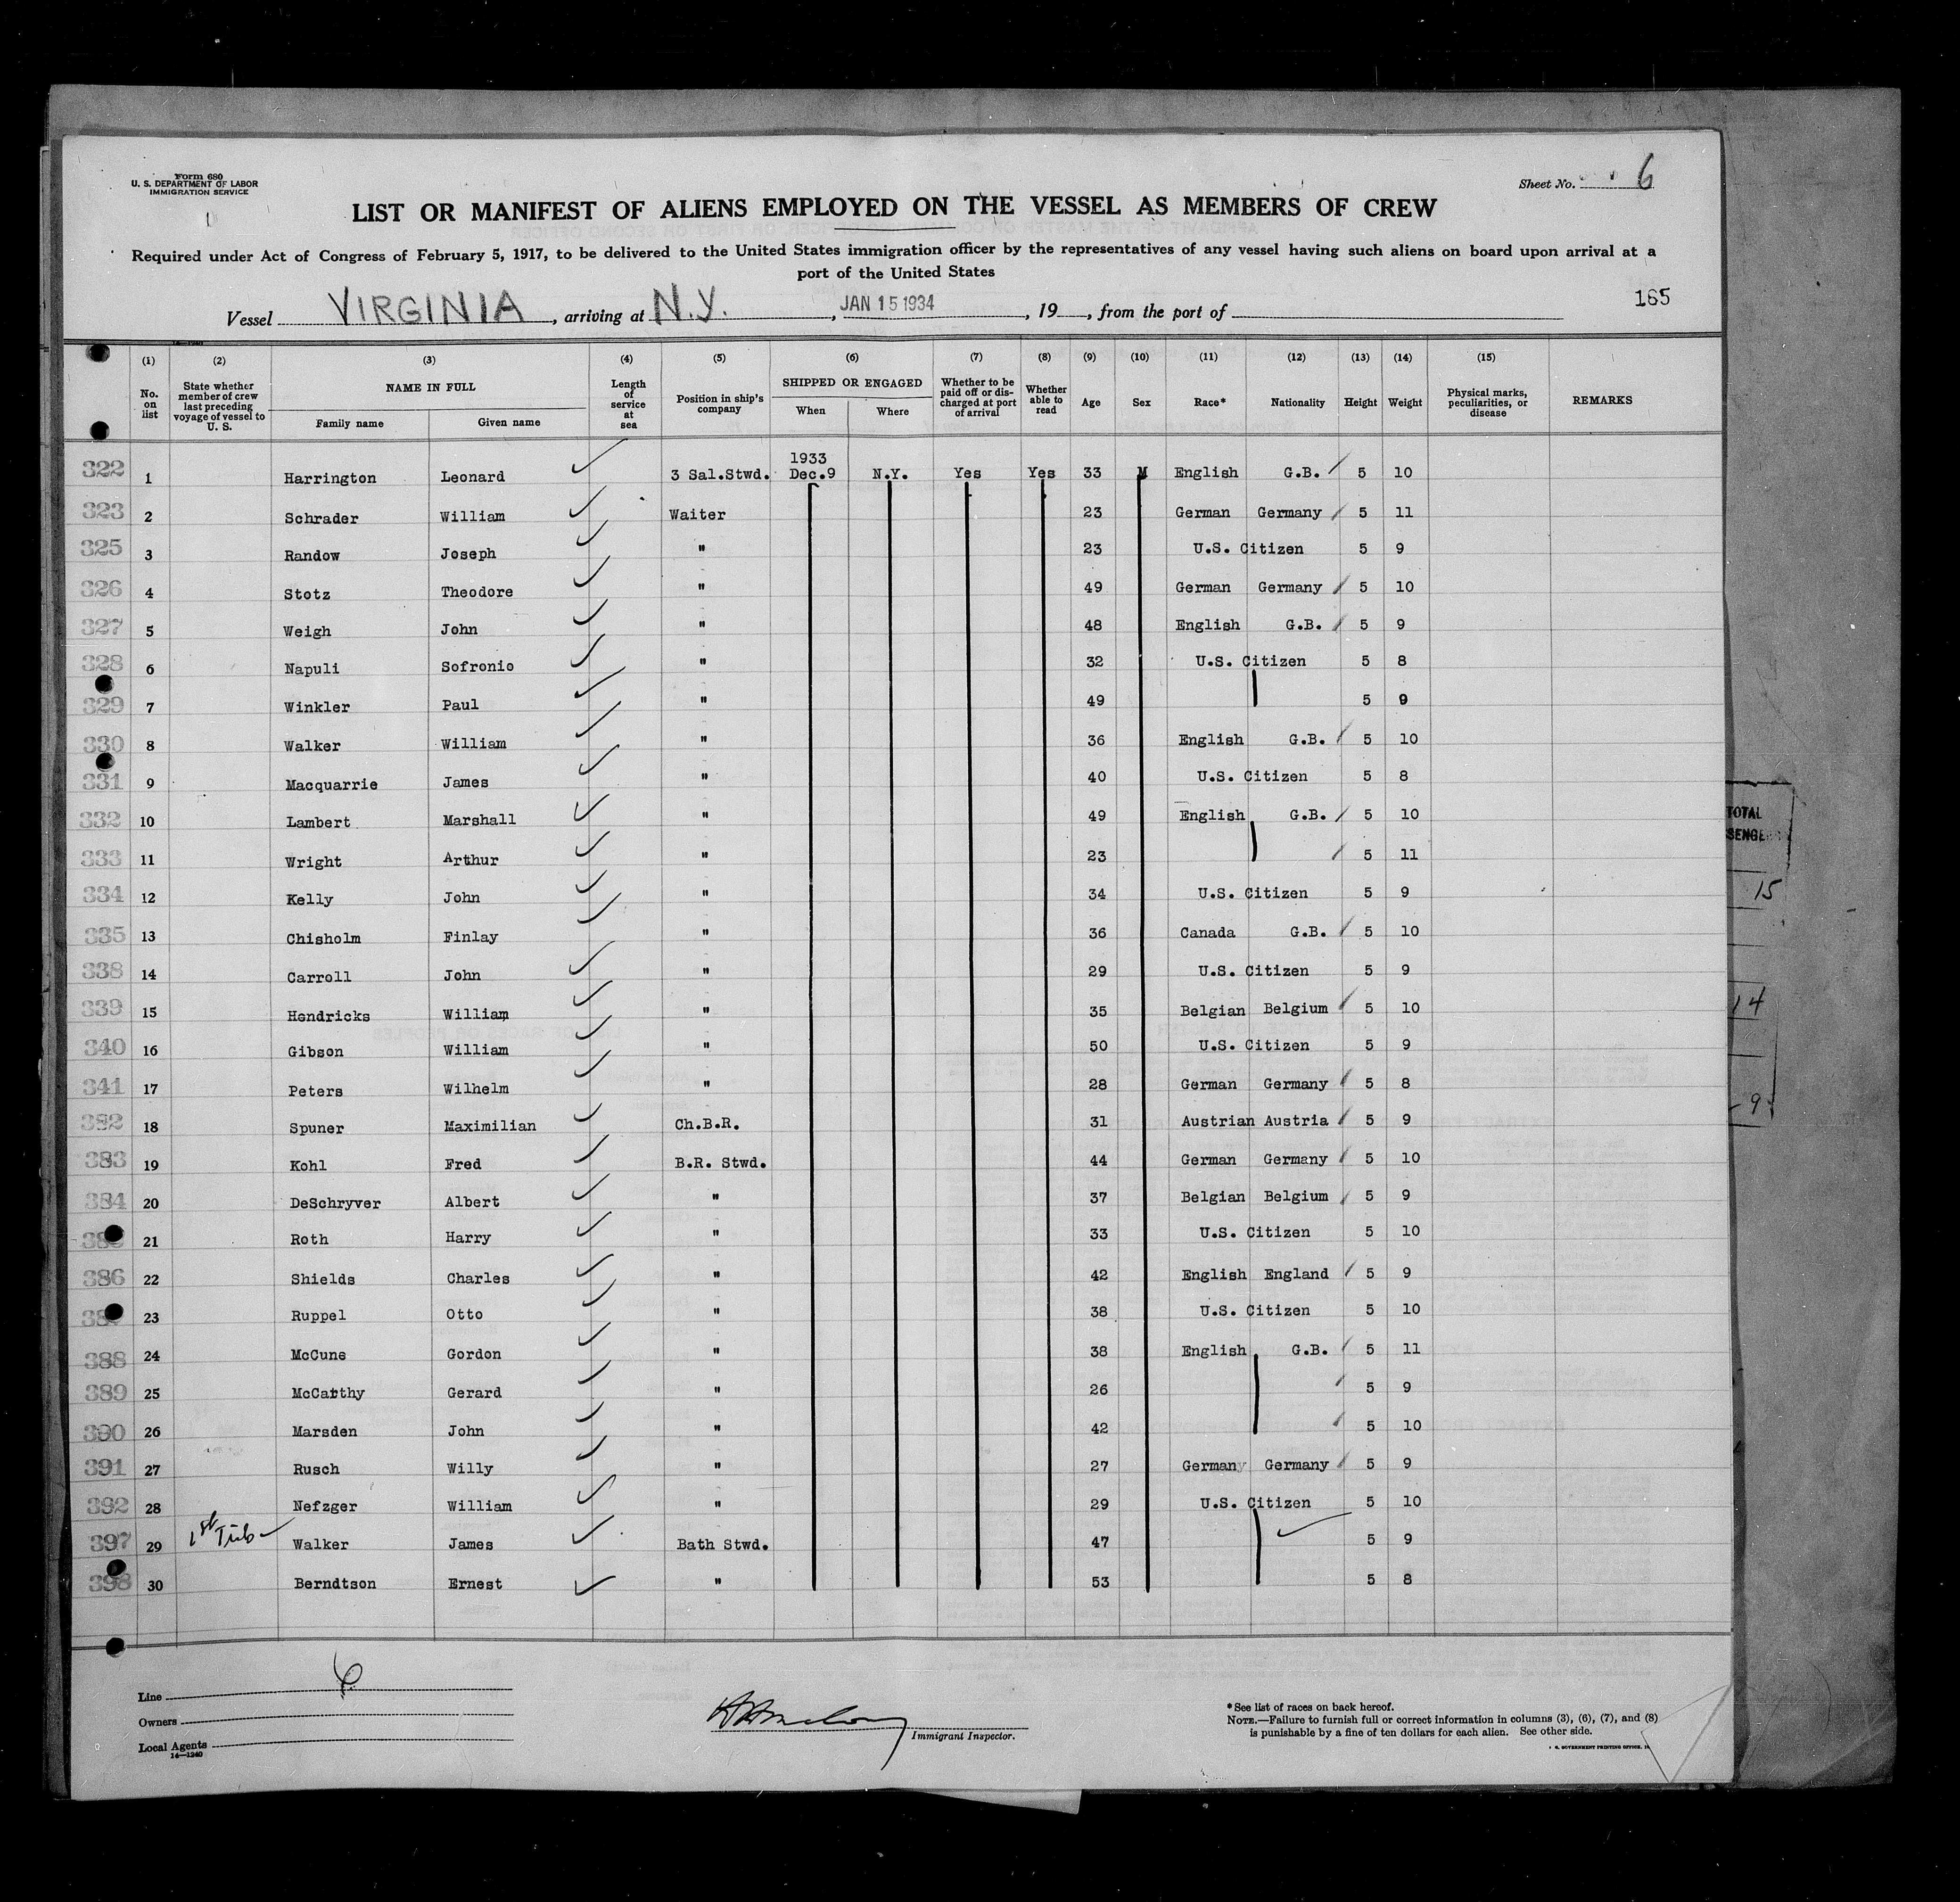 Form 680
U. S. DEPARTMENT OF LABOR
IMMIGRATION SERVICE
Sheet No. 6
LIST OR MANIFEST OF ALIENS EMPLOYED ON THE VESSEL AS MEMBERS OF CREW
Required under Act of Congress of February 5, 1917, to be delivered to the United States immigration officer by the representatives of any vessel having such aliens on board upon arrival at a
port of the United States
165
Vessel VIRGINIA, arriving at N.Y., JAN 15 1934, 19, from the port of
(1) (2) (3) (4) (5) (6) (7) (8) (9) (10) (11) (12) (13) (14) (15)
No. on list State whether member of crew last preceding voyage of vessel to U. S. NAME IN FULL Length of service at sea Position in ship's company SHIPPED OR ENGAGED Whether to be paid off or discharged at port of arrival Whether able to read Age Sex Race* Nationality Height Weight Physical marks, peculiarities, or disease REMARKS
Family name Given name When Where
1933
322 1 Harrington Leonard 3 Sal.Stwd. Dec.9 N.Y. Yes Yes 33 M English G.B. 5 10
323 2 Schrader William Waiter 23 German Germany 5 11
325 3 Randow Joseph " 23 U.S. Citizen 5 9
326 4 Stotz Theodore " 49 German Germany 5 10
327 5 Weigh John " 48 English G.B. 5 9
328 6 Napuli Sofronio " 32 U.S. Citizen 5 8
329 7 Winkler Paul " 49 5 9
330 8 Walker William " 36 English G.B. 5 10
331 9 Macquarrie James " 40 U.S. Citizen 5 8
332 10 Lambert Marshall " 49 English G.B. 5 10
333 11 Wright Arthur " 23 5 11
334 12 Kelly John " 34 U.S. Citizen 5 9
335 13 Chisholm Finlay " 36 Canada G.B. 5 10
338 14 Carroll John " 29 U.S. Citizen 5 9
339 15 Hendricks William " 35 Belgian Belgium 5 10
340 16 Gibson William " 50 U.S. Citizen 5 9
341 17 Peters Wilhelm " 28 German Germany 5 8
382 18 Spuner Maximilian Ch.B.R. 31 Austrian Austria 5 9
383 19 Kohl Fred B.R. Stwd. 44 German Germany 5 10
384 20 DeSchryver Albert " 37 Belgian Belgium 5 9
21 Roth Harry " 33 U.S. Citizen 5 10
386 22 Shields Charles " 42 English England 5 9
23 Ruppel Otto " 38 U.S. Citizen 5 10
388 24 McCune Gordon " 38 English G.B. 5 11
389 25 McCarthy Gerard " 26 5 9
390 26 Marsden John " 42 5 10
391 27 Rusch Willy " 27 Germany Germany 5 9
392 28 Nefzger William " 29 U.S. Citizen 5 10
397 29 1st Walker James Bath Stwd. 47 5 9
398 30 Berndtson Ernest " 53 5 8
TOTAL
15
14
9
Line
Owners
Local Agents
14—1240
Immigrant Inspector.
*See list of races on back hereof.
NOTE.—Failure to furnish full or correct information in columns (3), (6), (7), and (8)
is punishable by a fine of ten dollars for each alien. See other side.
GOVERNMENT PRINTING OFFICE